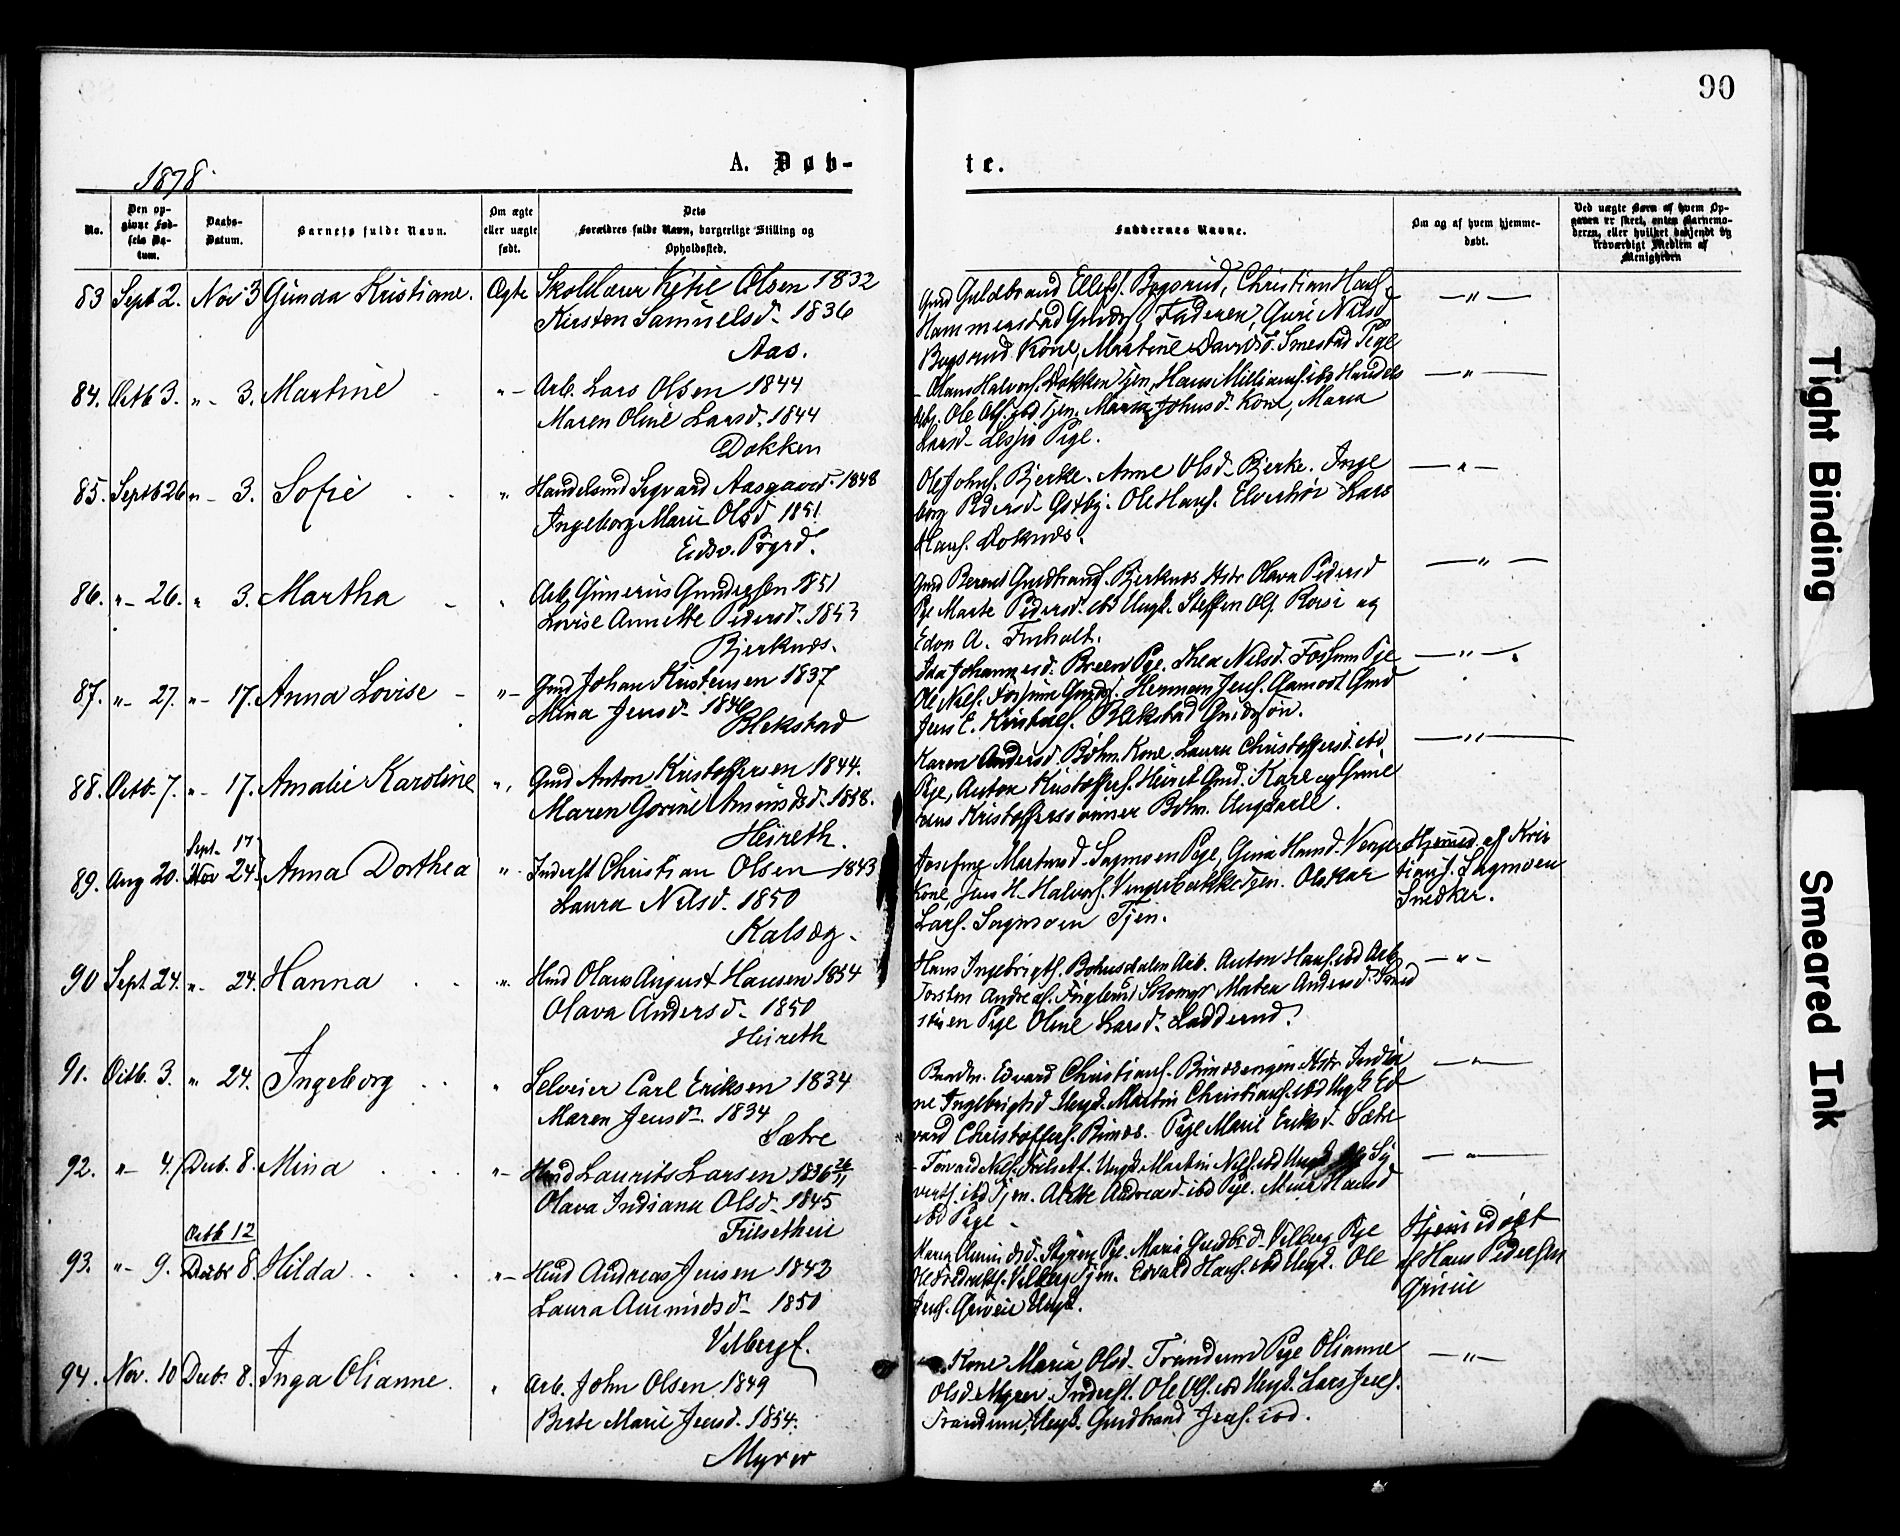 90
1878.
A. Døb-
te.
No.
Den op-
givne Fød-
sels Da-
tum.
Daabs-
Datum.
Barnets fulde Navn.
Om ægte
eller uægte
født.
Dets
Forældres fulde Navn, borgerlige Stilling og
Opholdssted.
Faddernes Navne.
Om og af hvem hjemme-
døbt.
Ved uægte Børn af hvem Op-
gaven er skeet, enten Barnemo-
deren, eller hvilket bekjendt og
troværdigt Medlem af
Menigheden
83 Sept 2. Nov 3 Gunda Kristiane. Ægte Skolelærer Ketil Olsen 1832
Kirsten Samuelsd. 1836
Aas.
Gmd Guldbrand Ellefs. Bogsrud, Christian Hans.
Hammerstad Gmds, Faderen, Guri Nilsd
Bogsrud Kone, Martine Davidsd. Smestad Pige
— " —
84. Octb 3. " - 3. Martine " - Arb. Lars Olsen 1844
Maren Oline Larsd. 1844
Dokken
Olaus Halvors. Dokken Tjen, Hans ibd Handels
Ole Ols. ibd Tjen. Maria Johnsd. Kone, Maria
Larsd. Pige.
— " —
85. Septb 26 " - 3. Sofie " Handelsmd Sigvard Aasgaard 1848
Ingeborg Marie Olsd. 1851
Eidsv. Prgrd.
Ole Johns. Bjerke. Anne Olsd. Bjerke. Inge
borg Pedersd. Østby. Ole Hans. Elverhøi Lars
Hans. Doknæs.
— " —
86. " - 26. " 3. Martha " Arb. Gunerius Gundersen 1851
Lovise Annette Pedersd. 1853
Bjerknæs.
Gmd Berent Guldbrands. Bjerknæs Hstr Olava Pedersd
Pge Marte Pedersd. ibd Ungk. Steffen Ols. Risi og
Edon A. Finholt.
— " —
87. " - 27. " - 17. Anna Lovise " - Gmd Johan Kristensen 1837
Mina Jensd. 1846
Blekstad
Ida Johannesd. Breen Pge. Thea Nilsd. Fossum Pge
Ole Nils. Fossum Gmds. Herman Jens. Gamoot Gmd
Jens E. Kristens. Blekstad Gmdssøn.
— " —
88. Octb. 7. " - 17. Amalie Karoline " Gmd Anton Kristoffersen 1844.
Maren Gorine Amundsd. 1858.
Heireth.
Karen Andersd. Bøhm. Kone. Laura Christoffersd. ibd
Pge, Anton Kristoffers. Heiret Gmd. Karl og
Jens Kristofferssønner Bøhm. Ungkarle.
— " —
Sept. 17
89. Aug 20. Nov 24. Anna Dorthea " - Inderst Christian Olsen 1843
Laura Nilsd. 1850
Kalsæg.
Josefine Martinsd. Sagmoen Pge, Gina Hansd. Venge
Kone, Jens H. Halvors. Vengerbakke Tjen. Oluskar
Lars. Sagmoen Tjen.
Hjemed. af Kris
tians. Sagmoen
Snedker.
90 Sept 24. " - 24. Hanna " Hmd Olaus August Hansen 1854
Olava Andersd. 1850
Heireth
Hans Ingebrigts. Bohusdalen Arb. Anton Hans. ibd Arb
Torsten Andreas. Skomgr Matea Andersd.
stuen Pge Oline Larsd. Ladderud.
— " —
91. Octb. 3. " 24. Ingeborg " Selveier Carl Eriksen 1834
Maren Jensd. 1834
Sætre
Edvard Christians. Hstr India
ne Ingebrigtsd. Ungk. Martin Christians. ibd Ungk. Ed
vard Christoffers. Pige Marie Eriksd. Sætre
— " —
92. " - 4. Decb. 8. Mina " - Hmd Laurits Larsen 1836 26/11
Olava Indiana Olsd. 1845
Frilsetheie
Torvard Nils. Frilset. Ungk. Martin Nils. ibd Ungk.
ibd Tjen. Andreasd. ibd Pge. Mina Hansd
ibd Pige
— " —
Octb 12
93. " - 9. Decbr 8 Hilda " - Hmd Andreas Jensen 1843
Laura Amundsd. 1850
Vilbergf.
Maren Amundsd. Pge. Maria Gundbrd. Vilberg Pge
Ole Fredriks. Vilberg Tjen. Edvald Hans. ibd Ungk. Ole
Jens. Ungk.
Hjemedøbt
af Hans Pedersen
94. Nov. 10 Decb. 8. Inga Olianne. " Arb. John Olsen 1849
Berte Marie Jensd. 1854.
Myrer
Kone Maria Olsd. Trandum Pge Olianne
Olsd. Myrer. Inderst. Ole Ols. ibd Ungk. Lars Jens.
Trandum, Ungk. Guldbrand Jens. ibd.
— " —
Tight Binding
Smeared Ink